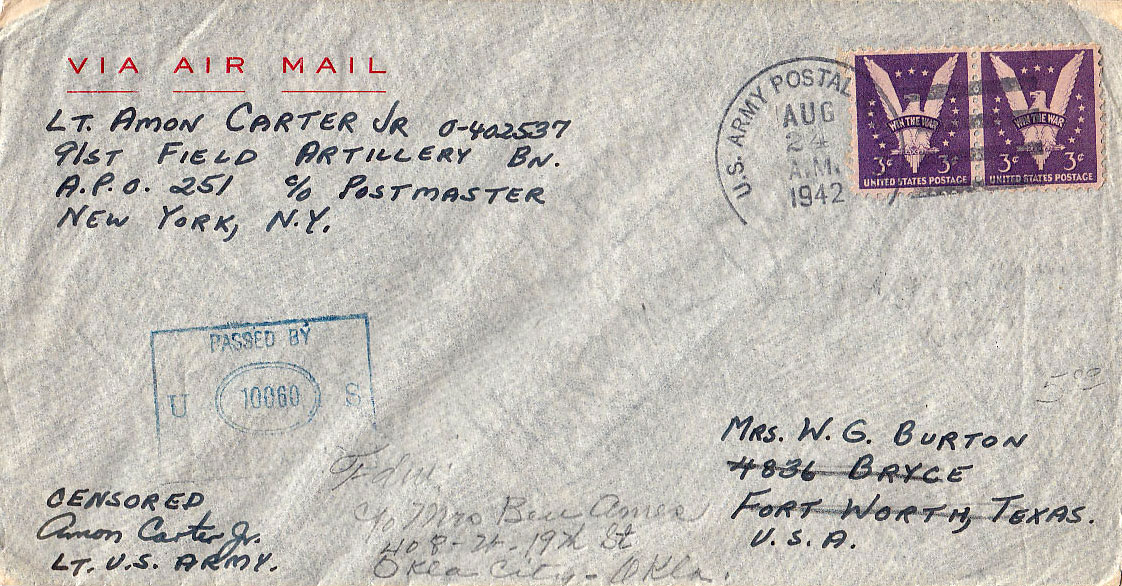 VIA AIR MAIL
LT. AMON CARTER JR O-402537
91ST FIELD ARTILLERY BN.
A.P.O. 251 c/o POSTMASTER
NEW YORK, N.Y.
U.S. ARMY POSTAL
AUG
24
A.M.
1942
WIN THE WAR
3¢ 3¢
UNITED STATES POSTAGE
WIN THE WAR
3¢ 3¢
UNITED STATES POSTAGE
PASSED BY
U 10060 S
5 00
MRS. W. G. BURTON
4836 BRYCE
FORT WORTH, TEXAS.
U.S.A.
CENSORED
Amon Carter Jr.
LT. U.S. ARMY.
c/o Mrs Ames
408- 19th St
Okla City - Okla.